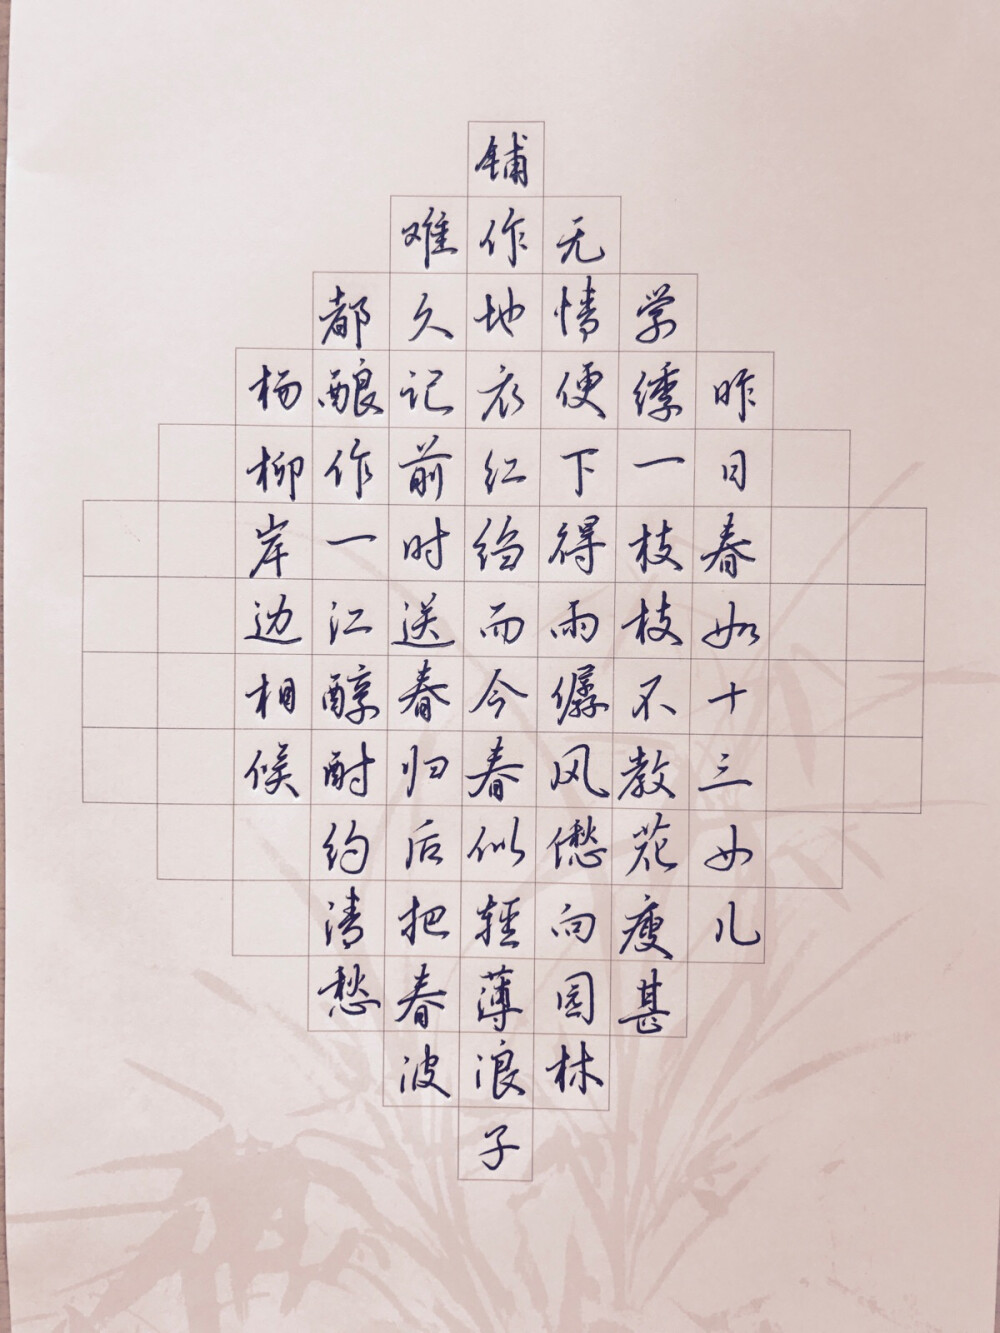 昨日春如十三女儿
学绣一枝枝不教花瘦甚
无情便下得雨僝风僽向园林
铺作地衣红绉而今春似轻薄浪子
难久记前时送春归后把春波
都酿作一江醇酎约清愁
杨柳岸边相候